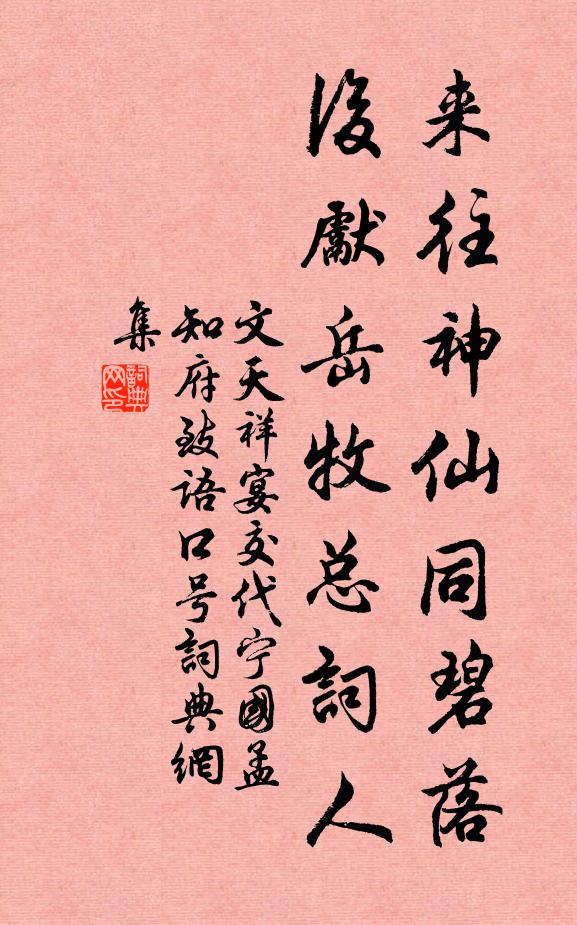 来往神仙同碧落
后獻岳牧总詞人
文天祥宴交代宁國孟
知府致语口号詞典網
集
詞典
网印